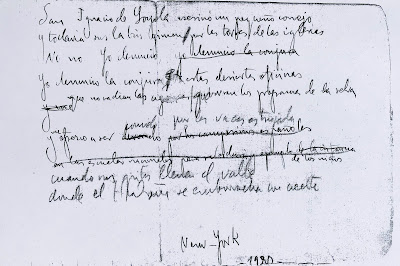 San Ignacio de Loyola asesinó un pequeño conejo
y todavía sus labios gimen por las torres de las iglesias
No no Yo denuncio yo denuncio la conjura
Yo denuncio la conjura de estas desiertas oficinas
que no radian las agonias que borran los programas de la selva
y me ofrezco a ser comido por las vacas estrujadas
devorado por los campesinos españoles
cuando sus gritos llenan el valle
donde el Hudson se emborracha con aceite
New-York